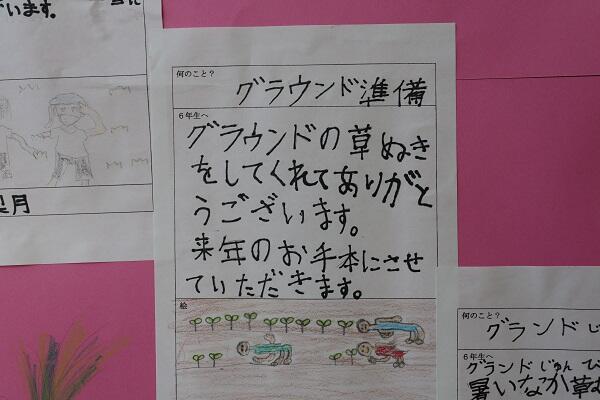 います。
何のこと？
グラウンド準備
６年生へ
グラウンドの草ぬき
をしてくれてありがと
うございます。
来年のお手本にさせ
ていただきます。
絵
月
何のこと？
グランドじ
６年生へ
グランドじゅんび
暑いなか草む